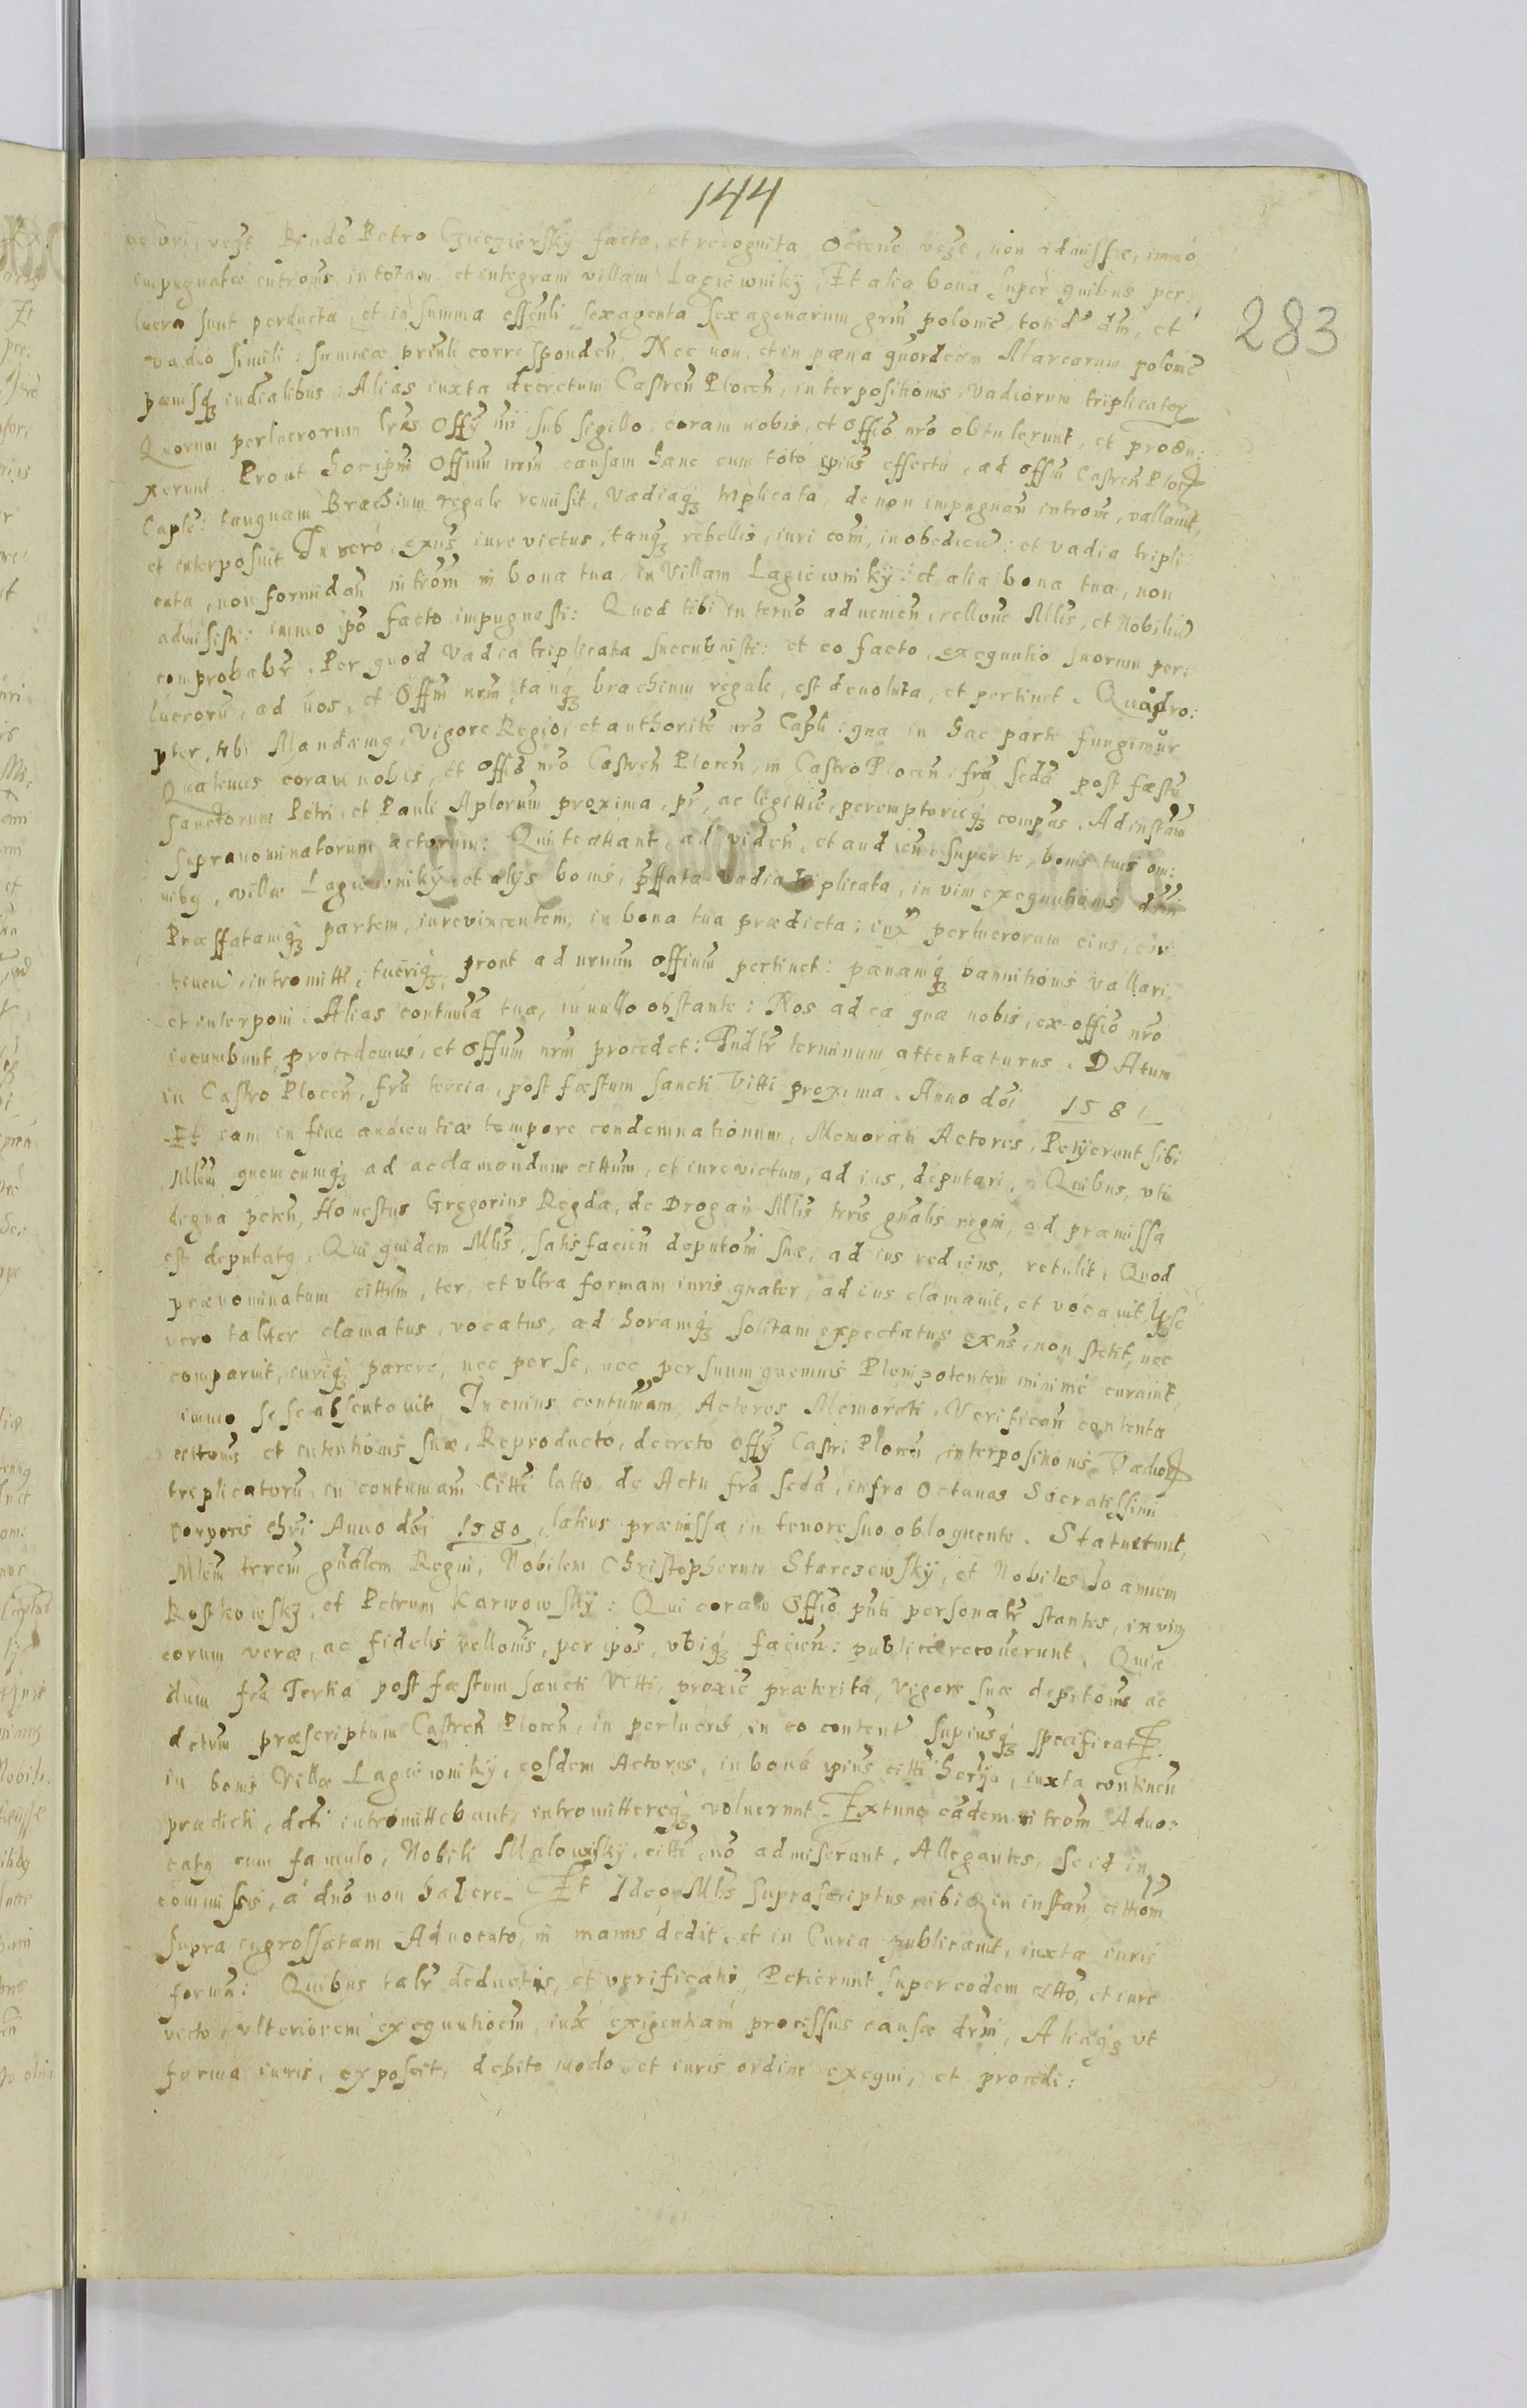 144
283
actori, Petro facta, et recognita non admissae, immo
impugnatae introms, in totam et integram villam Lagiewniky, Et alia bona super quibus per:
lucra sunt perducta, et in summa essenli sexagenta sexagenarum grm polome, totid dm, et
vadio simili: summae prinli corresponden, Nec non, et in paena quordeam Marcarum polome
paenisq iudialibus: Alias iuxta decretum Castren Plocen, interpositionis, vadiorum triplicator
Quorum perlucrorum lras Offy sub sigillo, coram nobis, et offio nro obtulerunt, et produ:
xerunt. Prout hoc ipm Offium nrm causam hanc cum toto ipius effectu, ad offm Castren Ploc
Caple: tanquam Brachium regale remisit, Vadiaq triplicata, de non impugnan introme, vallavit,
et interposuit Tu vero, exns iure victus, tanq rebellis, iuri comi, inobedien: et vadia tripli:
cata, non formidan introm in bona tua, in Villam Lagiewniky: et alia bona tua, non
admisisti: immo ipo facto impugnasti: Quod tibi in terno advenien, rellone Mlis, et Nobiliu
comprobabr. Per quod Vadia triplicata succubuisti: et eo facto, exequutio suorum per:
lucroru, ad nos, et Offm nrm, tanq brachium regale, est devoluta, et pertinet. Quapro:
pter, tibi Mandamq, Vigore Regio, et authorite nra Capli: qua in hac parte fungimur
Quatenus coram nobis, et offio nro Castren Plocen, in Castro Plocen, fra seda post faestu
Sanctorum Petri, et Pauli Aplorum proxima, pr, ac legittie, peremptorieq compas. Ad instam
supranominatorum actorum: Qui te cittant, ad viden, et audien, super te, bonis tuis om:
nibq, villae Lagiewniky, et alys bonis, pffata vadia triplicata, in vim exequutionis
Praeffatamq partem, iurevincentem, in bona tua praedicta: iux perlucrorum eius,
tenen, intromitti, tueriq, prout ad nrum offium pertinet: paenamq bannitionis vallari,
et interponi: Alias contumia tua, in nullo obstante: Nos ad ea qua nobis, ex offio nro
incumbunt, procedemus, et offum nrm procedet: Iudtr terminum attentaturus. DAtum
in Castro Plocen, fra tercia, post faestum sancti Vitti proxima. Anno doi 1581
Et iam in fine audientiae tempore condemnationum, Memorati Actores, Petyerunt sibi
Mlem quemcumq ad acclamandum cittum, et iurevictum, ad ius, deputari. Quibus, uti
degna peten, Honestus Gregorius Regda, de Drogan Mlis teris gnalis regni, ad praemissa
est deputatq. Qui quidem Mlis, satisfacien deputomi suae, ad ius rediens, retulit, Quod
praenominatum cittum, ter, et ultra formam iuris gnater, ad ius clamavit, et vocavit Ipse
vero taliter clamatus, vocatus, ad horamq solitam expectatus exns, non stetit, nec
comparuit, iuriq parere, nec per se, nec per suum quemvis Plenipotentem minime curavit,
immo sese absentavit. In cuius contumam, Actores Memorati, Verifican contenta
cittonis et intentionis suae, Reproducto, decreto offy Castri Plocen, interpositionis Vadior
triplicatoru, in contumam Citti latto, de Actu fra seda, infra Octavas Sacratissimi
Corporis chri Anno doi 1580, latius praemissa in tenore suo obloquente. Statuerunt,
Mlem terem gnalem Regni, Nobilem Christopherum Starczewsky, et Nobiles Joannem
Rostkowsky, et Petrum Karwowsky: Qui coram Offio pnti personatr stantes, in vim
eorum verae, ac fidelis rellonis, per ipos, ubiq facien: publice recoverunt. Quia
dum fra Tertia post faestum sancti Vitti, proxie praeterita, vigore suae depitomis ac
dcrtum praescriptum Castren Plocen, in perlucris in eo content supiusq specificat
in bonis Villae Lagiewniky, eosdem Actores, in bona ipius citti heryo, iuxta continen
praedicti, dcti intromittebant, intromittereq voluerunt. Extunc eadem introm Advo:
catq cum famulo, Nobili Malowisky, citti, no admiserunt, Allegantes, se id in
commissis, a dno non habere. Et Ideo Mlis suprascriptus, ibide in instan cittom
supra ingrossatam Advocato, in manus dedit, et in Curia publicavit, iuxta iuris
forma: Quibus talr deductis, et verificatis, Petierunt super eodem citto, et iure
victo, ulteriorem exequutioem, iux exigentiam processus causae drm, Aliaq ut
forma iuris, exposcit, debito modo, et iuris ordine exequi, et procedi: